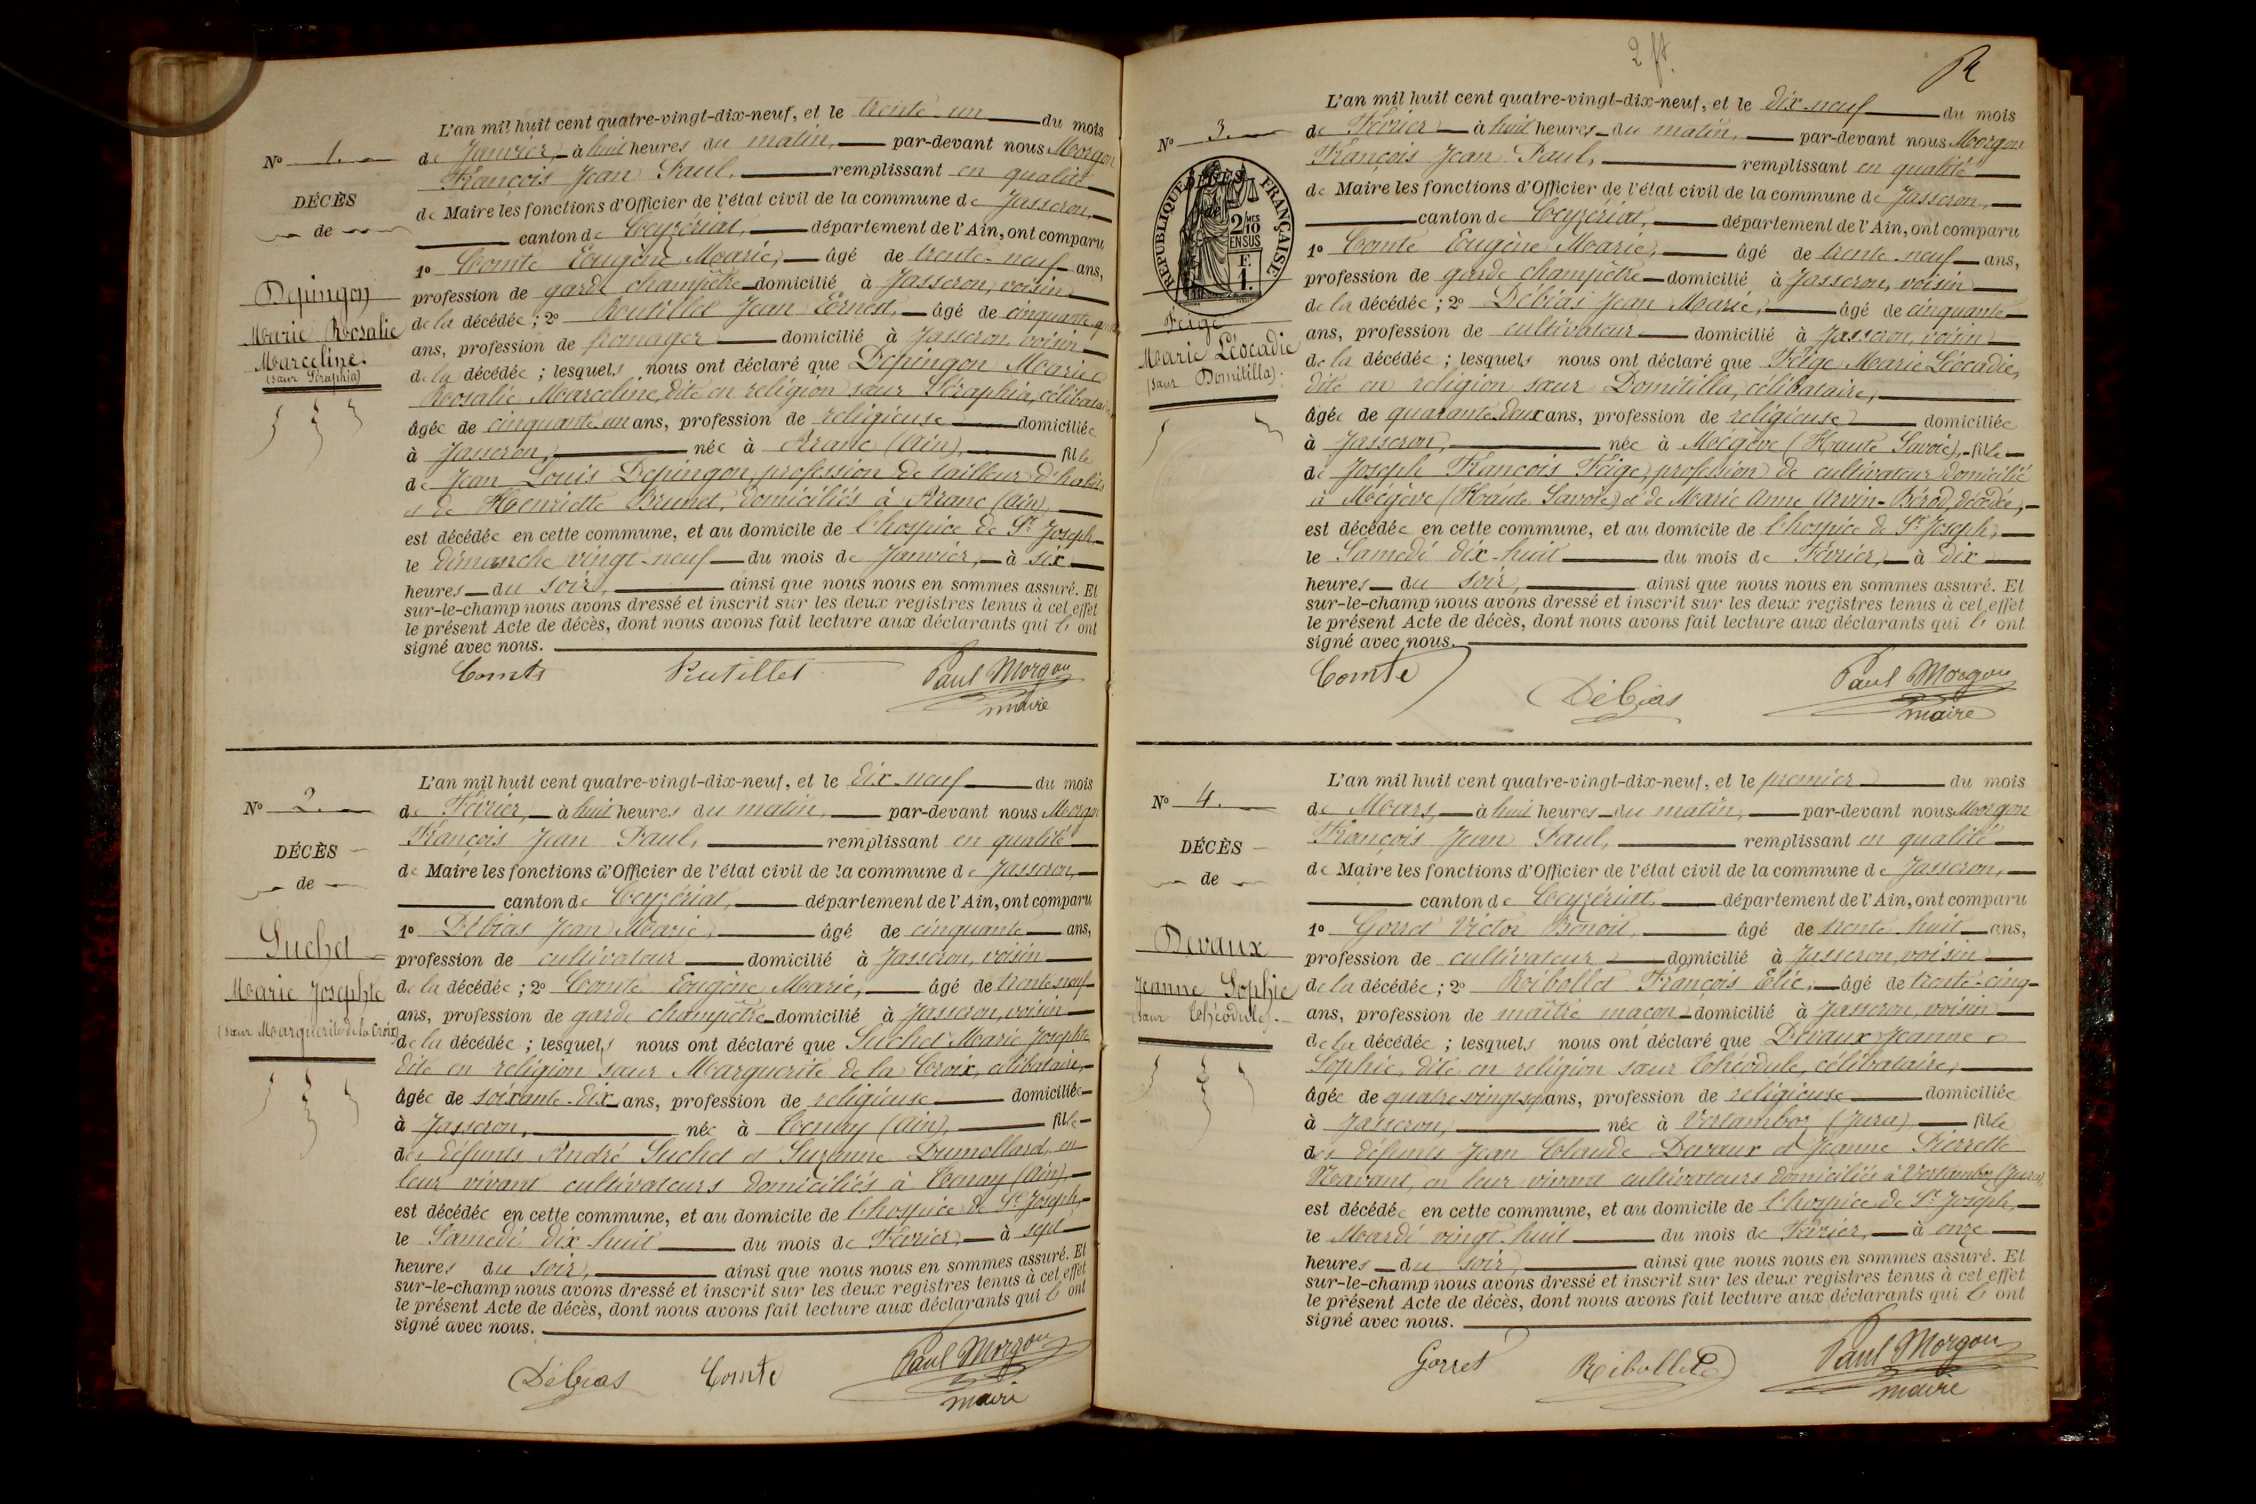 N° 1.
DÉCÈS
de
Depingon
Marie Rosalie
Marceline.
(sœur Séraphia)
L'an mil huit cent quatre-vingt-dix-neuf, et le trente-un du mois
de Janvier, à huit heures du matin, par-devant nous Morgon
François Jean Paul, remplissant en qualité
de Maire les fonctions d'Officier de l'état civil de la commune de Jasseron,
canton de Ceyzériat, département de l'Ain, ont comparu
1° Comte Eugène Marie, âgé de trente-neuf ans,
profession de garde champêtre domicilié à Jasseron, voisin
de la décédée ; 2° Routillet Jean Ernest, âgé de cinquante
ans, profession de fromager domicilié à Jasseron voisin
de la décédée ; lesquels nous ont déclaré que Depingon Marie
Rosalie Marceline, dite en religion sœur Séraphia, célibataire
âgée de cinquante un ans, profession de religieuse domiciliée
à Jasseron, née à Aranc (Ain), fille
de Jean Louis Depingon, profession de tailleur d'habits
et de Henriette Brunet, domiciliés à Aranc (Ain),
est décédée en cette commune, et au domicile de l'hospice de St Joseph
le dimanche vingt-neuf du mois de Janvier, à six
heures du soir, ainsi que nous nous en sommes assuré. Et
sur-le-champ nous avons dressé et inscrit sur les deux registres tenus à cet effet
le présent Acte de décès, dont nous avons fait lecture aux déclarants qui l' ont
signé avec nous.
Comte Rutillet Paul Morgon
maire
N° 2.
DÉCÈS
de
Suchet
Marie Josephte
(sœur Marguerite de la Croix)
L'an mil huit cent quatre-vingt-dix-neuf, et le dix-neuf du mois
de Février, à huit heures du matin, par-devant nous Morgon
François Jean Paul, remplissant en qualité
de Maire les fonctions d'Officier de l'état civil de la commune de Jasseron,
canton de Ceyzériat, département de l'Ain, ont comparu
1° Débias Jean Marie, âgé de cinquante ans,
profession de cultivateur domicilié à Jasseron, voisin
de la décédée ; 2° Comte Eugène Marie, âgé de trente neuf
ans, profession de garde champêtre domicilié à Jasseron, voisin
de la décédée ; lesquels nous ont déclaré que Suchet Marie Josephte
dite en religion sœur Marguerite de la Croix, célibataire,
âgée de soixante-dix ans, profession de religieuse domiciliée
à Jasseron, née à Tenay (Ain), fille
des défunts André Suchet et Suzanne Dumollard, en
leur vivant cultivateurs domiciliés à Tenay (Ain),
est décédée en cette commune, et au domicile de l'hospice de St Joseph,
le Samedi dix-huit du mois de Février, à sept
heures du soir, ainsi que nous nous en sommes assuré. Et
sur-le-champ nous avons dressé et inscrit sur les deux registres tenus à cet effet
le présent Acte de décès, dont nous avons fait lecture aux déclarants qui l' ont
signé avec nous.
Débias Comte Paul Morgon
maire
2 ft.
N° 3.
RÉPUBLIQUE FRANÇAISE
2/10 EN SUS
F.
1.
Feige
Marie Léocadie
(sœur Domitilla).
L'an mil huit cent quatre-vingt-dix-neuf, et le dix-neuf du mois
de Février à huit heures du matin, par-devant nous Morgon
François Jean Paul, remplissant en qualité
de Maire les fonctions d'Officier de l'état civil de la commune de Jasseron,
canton de Ceyzériat, département de l'Ain, ont comparu
1° Comte Eugène Marie, âgé de trente-neuf ans,
profession de garde champêtre domicilié à Jasseron, voisin
de la décédée ; 2° Débias Jean Marie, âgé de cinquante
ans, profession de cultivateur domicilié à Jasseron, voisin
de la décédée ; lesquels nous ont déclaré que Feige Marie Léocadie,
dite en religion sœur Domitilla, célibataire,
âgée de quarante-deux ans, profession de religieuse domiciliée
à Jasseron, née à Mégève (Haute Savoie), fille
de Joseph François Feige, profession de cultivateur domicilié
à Mégève (Haute Savoie) et de Marie Anne Arvin-Bérod, décédée,
est décédée en cette commune, et au domicile de l'hospice de St Joseph,
le Samedi dix-huit du mois de Février, à dix
heures du soir, ainsi que nous nous en sommes assuré. Et
sur-le-champ nous avons dressé et inscrit sur les deux registres tenus à cet effet
le présent Acte de décès, dont nous avons fait lecture aux déclarants qui l' ont
signé avec nous.
Comte Débias Paul Morgon
maire
N° 4.
DÉCÈS
de
Devaux
Jeanne Sophie
(sœur Théodule).
L'an mil huit cent quatre-vingt-dix-neuf, et le premier du mois
de Mars, à huit heures du matin, par-devant nous Morgon
François Jean Paul, remplissant en qualité
de Maire les fonctions d'Officier de l'état civil de la commune de Jasseron,
canton de Ceyzériat, département de l'Ain, ont comparu
1° Gorret Victor Benoit, âgé de trente-huit ans,
profession de cultivateur domicilié à Jasseron, voisin
de la décédée ; 2° Ribollet François Elie, âgé de trente-cinq
ans, profession de maître maçon domicilié à Jasseron, voisin
de la décédée ; lesquels nous ont déclaré que Devaux Jeanne
Sophie, dite en religion sœur Théodule, célibataire,
âgée de quatre vingt sept ans, profession de religieuse domiciliée
à Jasseron, née à Vertamboz (Jura) fille
des défunts Jean Claude Devaux et Jeanne Pierrette
en leur vivant cultivateurs domiciliés à Vertamboz (Jura),
est décédée en cette commune, et au domicile de l'hospice de St Joseph,
le Mardi vingt-huit du mois de Février, à onze
heures du soir, ainsi que nous nous en sommes assuré. Et
sur-le-champ nous avons dressé et inscrit sur les deux registres tenus à cet effet
le présent Acte de décès, dont nous avons fait lecture aux déclarants qui l' ont
signé avec nous.
Gorret Ribollet Paul Morgon
maire